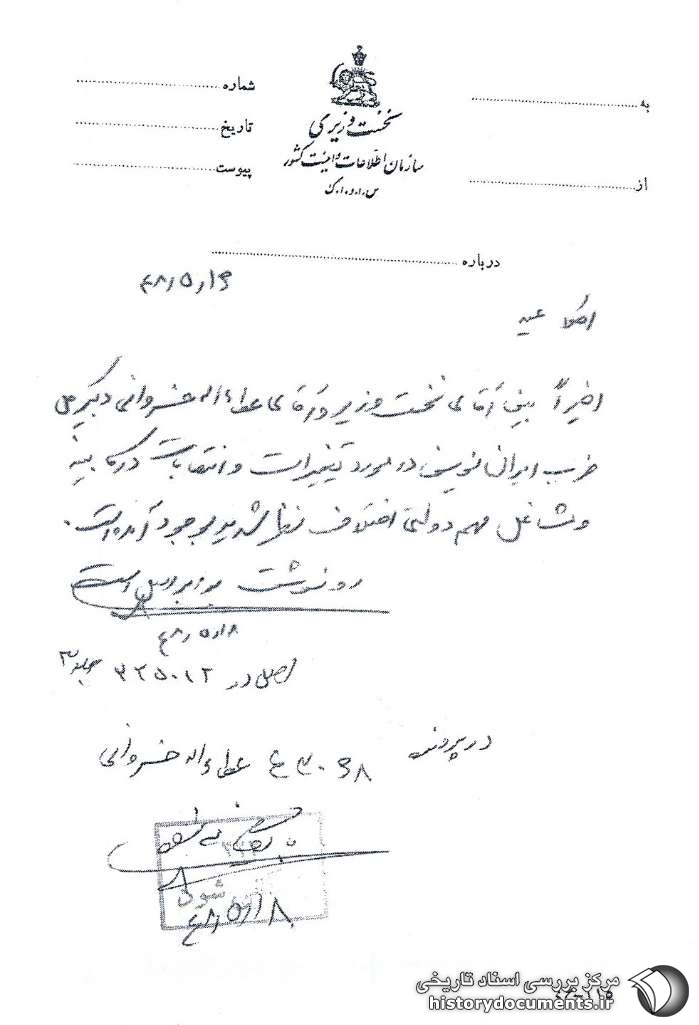 به
از
شماره
تاریخ
پیوست
نخست وزیری
سازمان اطلاعات و امنیت کشور
س.ا.و.ا.ک
درباره
۴۸٫۵٫۱۶
اطلاعیه
اخیراً بین آقای نخست وزیر و آقای عطاءاله خسروانی دبیرکل
حزب ایران نوین در مورد تغییرات و انتصابات در کابینه
و مشاغل مهم دولتی اختلاف نظر شدید بوجود آمده است.
رونوشت برابر اصل است
۴۸٫۵٫۱۸
اصل در ۳۲۵۰۱۲ جلد ۳
در پرونده
۳۰۶۸ ع عطاءاله خسروانی
بایگانی شود
۴۸٫۵٫۱۸
شود
مرکز بررسی اسناد تاریخی
historydocuments.ir